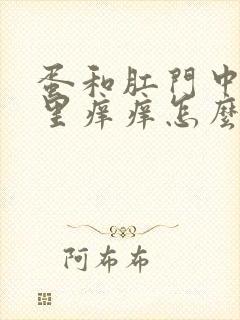 蛋和肛門中
里痒痒怎麼
阿布布